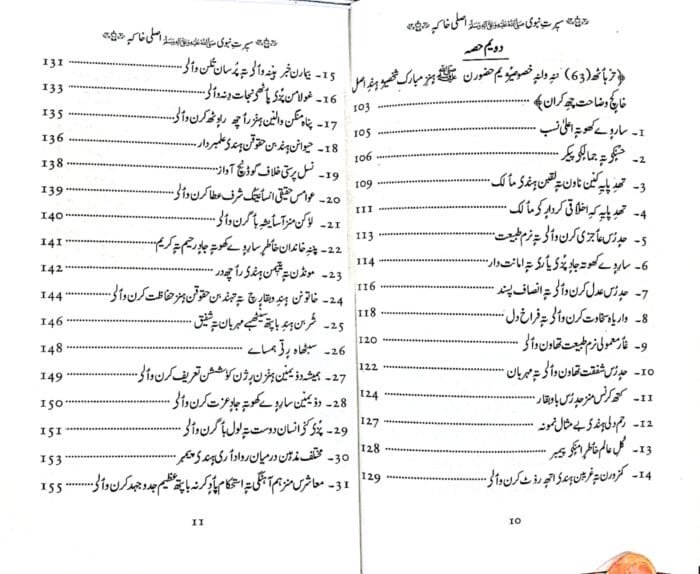 سیرت نبوی ﷺ اصلی خاکہ
دویم حصہ
﴿تریٔاٹھ (63) تتہٕ ولنہٕ خصوصیٔژ یم حضورن ﷺ ہنز مبارک شخصیژ ہنٛد اصل
خٲکچ وضاحت چھ کران﴾ 103
1- ساروے کھوتہٕ اعلیٰ نسب 105
2- خۄشگی تہٕ جمالکۍ پیکر 106
3- تھدِ پایہ کین ناون تہٕ لقبن ہندۍ مٲلک 109
4- تھدِ پایہ کہ اخلاقی کردارکۍ مٲلک 111
5- حدٕرٕس عٲجزی کرن وٲلۍ تہٕ نرم طبیعت 113
6- ساروے کھوتہٕ جادٕ پٔزۍ یٲرۍ تہٕ امانت دار 114
7- حدٕرٕس عدل کرن وٲلۍ تہٕ انصاف پسند 116
8- واریاہ سخاوت کرن وٲلۍ تہٕ فراخ دل 118
9- غٲر معمولی نرم طبیعت تعاون وٲلۍ 120
10- حدٕرٕس شفقت تعاون وٲلۍ تہٕ مہربان 122
11- کتھ کرنس منز حدٕرٕس باوقار 124
12- رحم دلی ہندۍ بے مثال نمونہ 127
13- کُلِ عالم خٲطرٕ امنکۍ پیمبر 128
14- کمزورن تہٕ غریبن ہندۍ اتھہٕ رۆٹ کرن وٲلۍ 129
10
سیرت نبوی ﷺ اصلی خاکہ
15- بیمارن خبر ہینہٕ وٲلۍ تہٕ پُرسان تُلن وٲلۍ 131
16- غولامن پٔزۍ پٲٹھۍ نجات دِنہٕ وٲلۍ 133
17- پناہ منگن والین ہنز رٲچھ راوٹھ کرن وٲلۍ 135
18- حیوانن ہند بن حقوقن ہندۍ علمبردار 136
19- نسل پرستی خلاف گۄڈنیچ آواز 138
20- عوامس حقیقی انسٲنیتک شرف عطا کرن وٲلۍ 139
21- لوٗکن منز آسایشہٕ بٲگرن وٲلۍ 140
22- پننہٕ خاندان خٲطرٕ ساروے کھوتہٕ جادٕ رحیم تہٕ کریم 141
23- مونڈن تہٕ یتیمن ہندۍ رٲچھدر 142
24- خاتونن ہندِ وقارچ تہٕ تہند بن حقوقن ہنز حفاظت کرن وٲلۍ 144
25- شربن ہندِ باپتھ سیٹھہے مہربان تہٕ شفیق 146
26- سبٹھاہ رٕتۍ ہمسایے 148
27- ہمیشہ دۄیمین ہنزن رژن کۄششن تعریف کرن وٲلۍ 149
28- دۄیمین ساروے کھوتہٕ جادٕ عزت کرن وٲلۍ 150
29- پٔزۍ کنۍ انسان دوست تہٕ لول بٲگرن وٲلۍ 151
30- مختلف مذہبن درمیان رواداری ہندۍ پیمبر 153
31- معاشرس منز ہم آہنگی تہٕ استحکام پٲدٕ کرنہٕ باپتھ عظیم جدوجہد کرن وٲلۍ 155
11